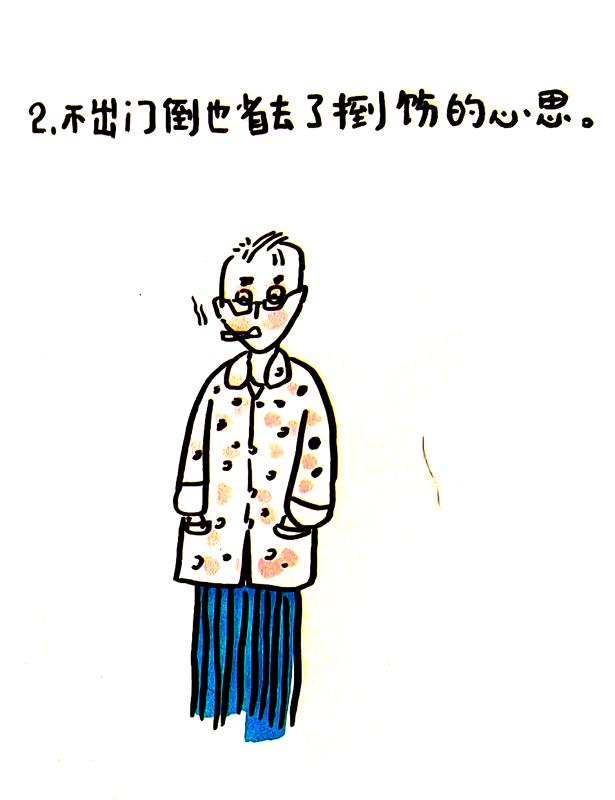 2.不出门倒也省去了捯饬的心思。